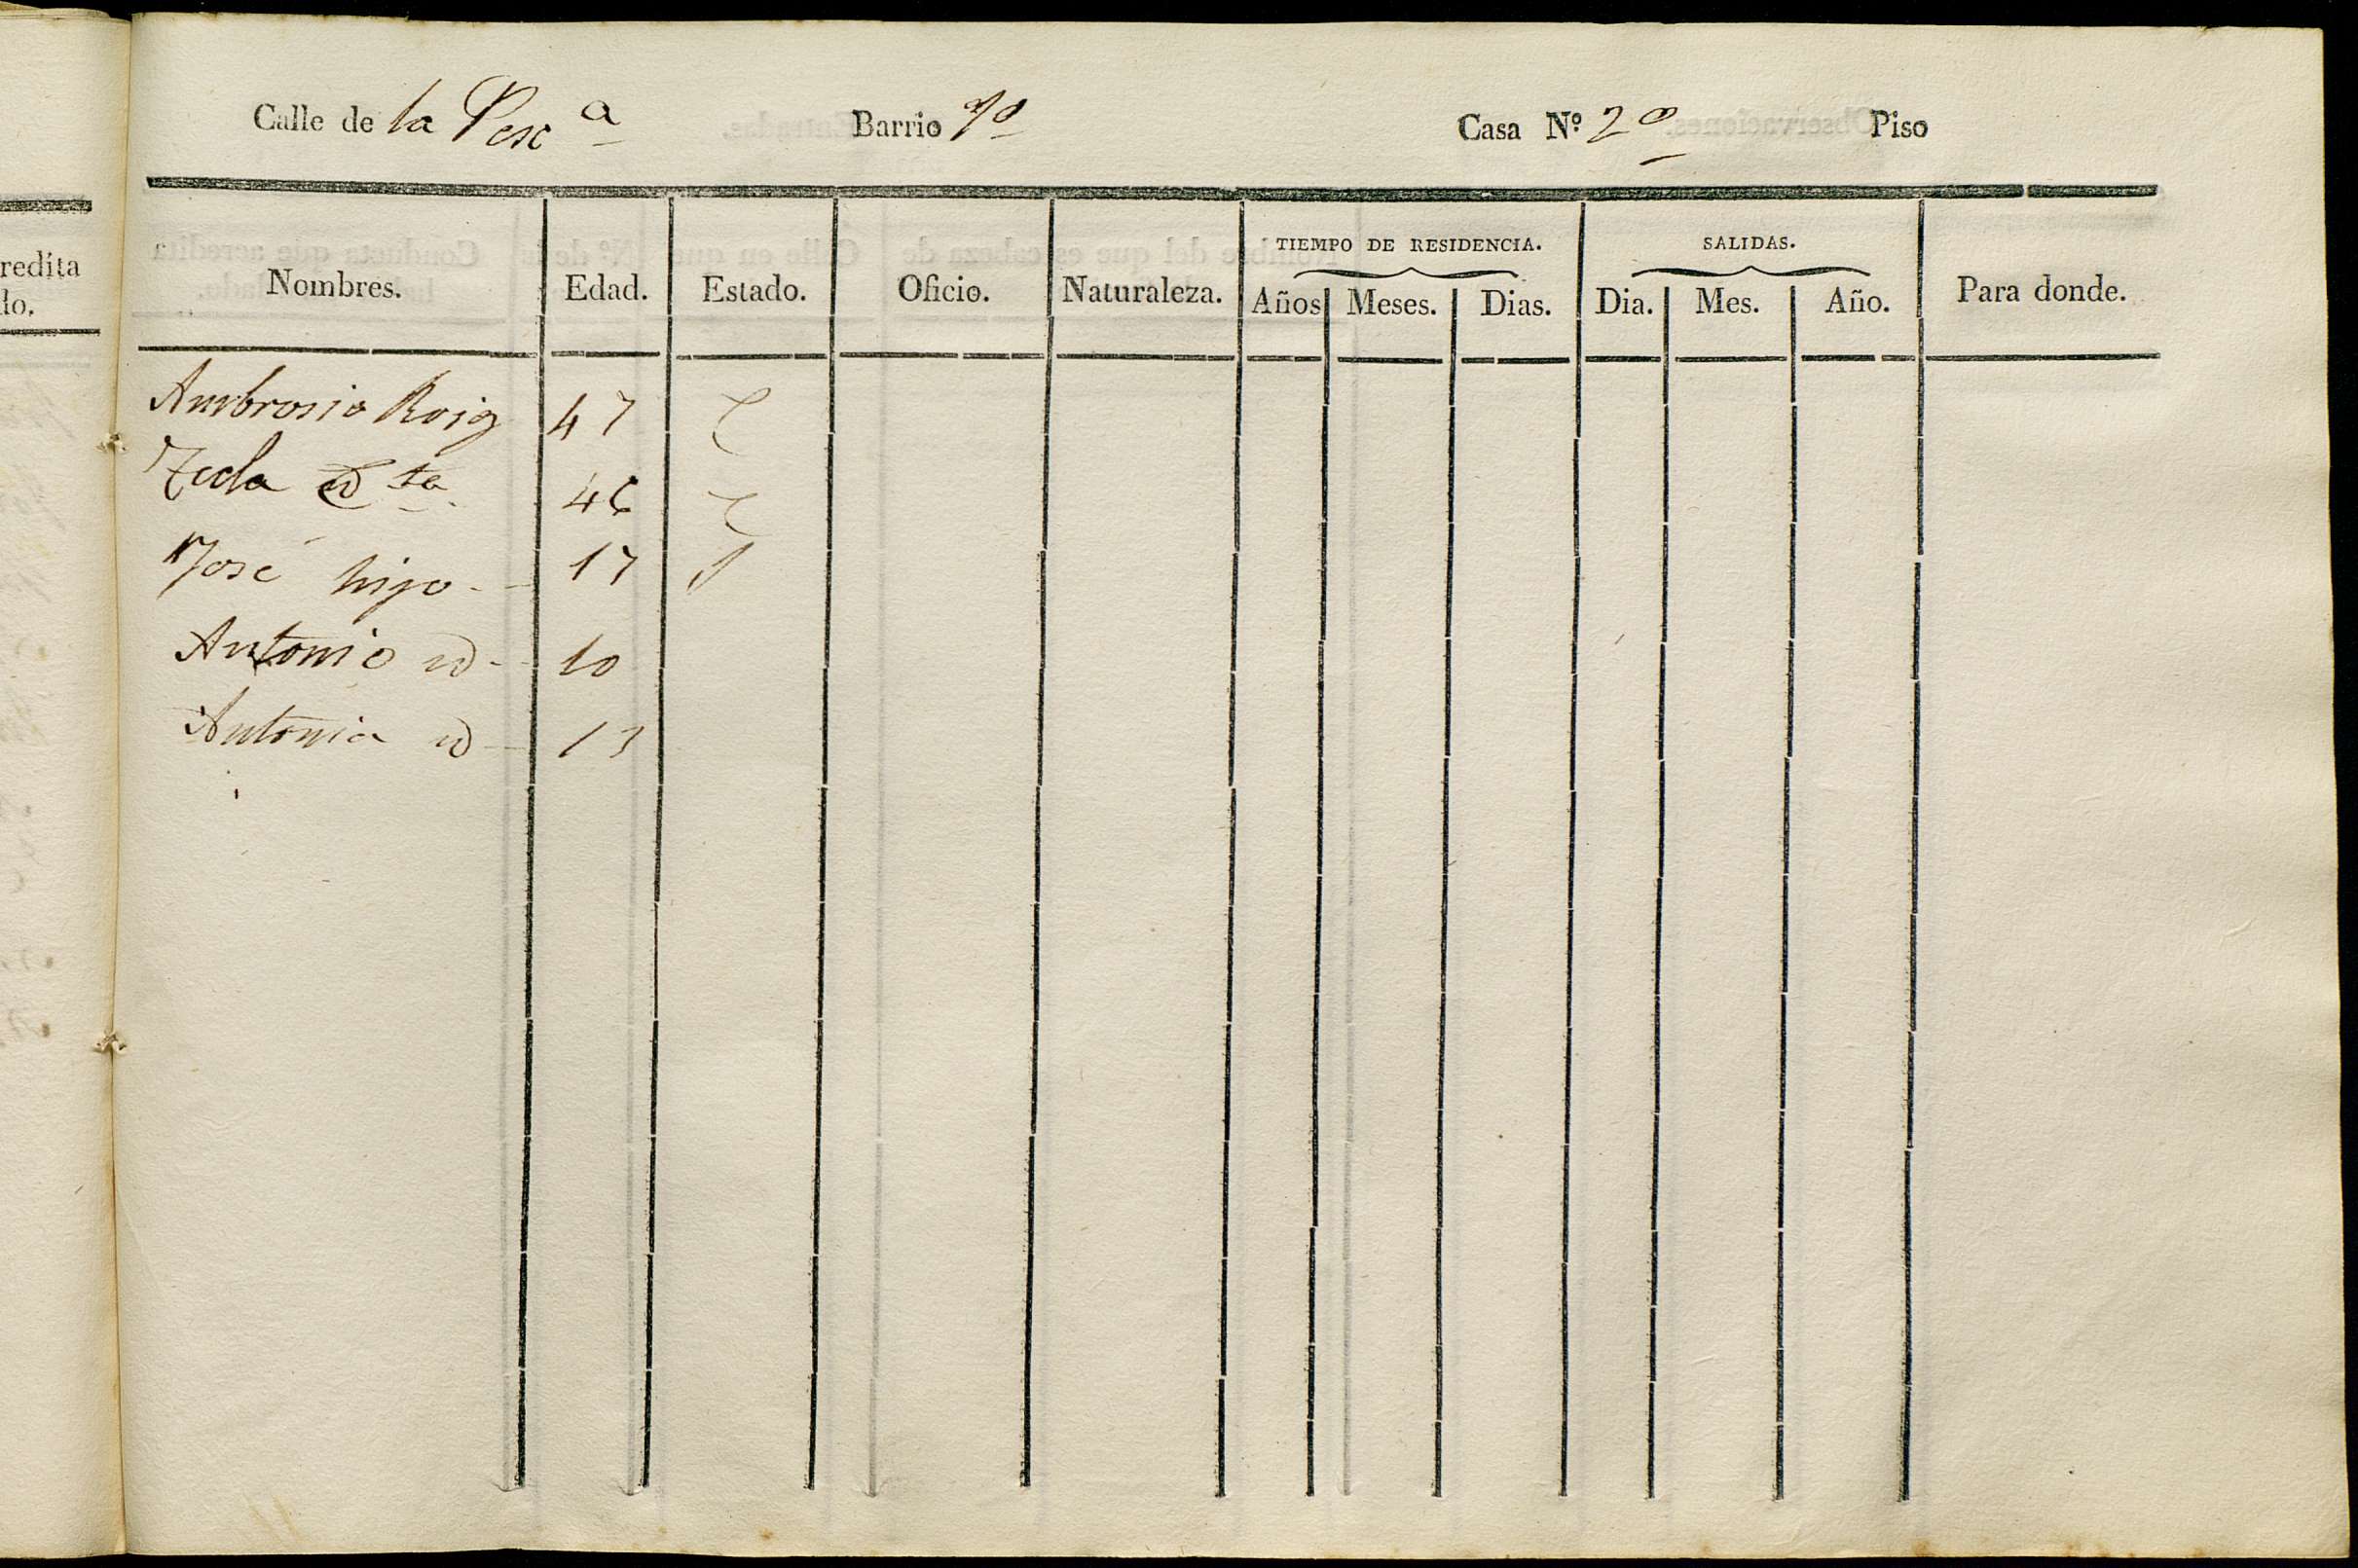 Calle de la Pesc.ª Barrio 1º Casa Nº 2º Piso
TIEMPO DE RESIDENCIA. SALIDAS.
Nombres. Edad. Estado. Oficio. Naturaleza. Años Meses. Dias. Dia. Mes. Año. Para donde.
redita
do.
Ambrosio Roig 47 C
Tecla 46 C
José hijo - 17 S
Antonio id - 10
Antonia id - 13